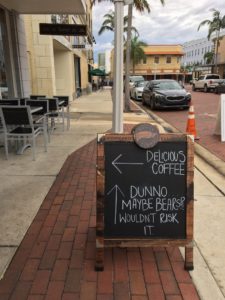 DELICIOUS
COFFEE
DUNNO
MAYBE BEARS?
WOULDN'T RISK
IT